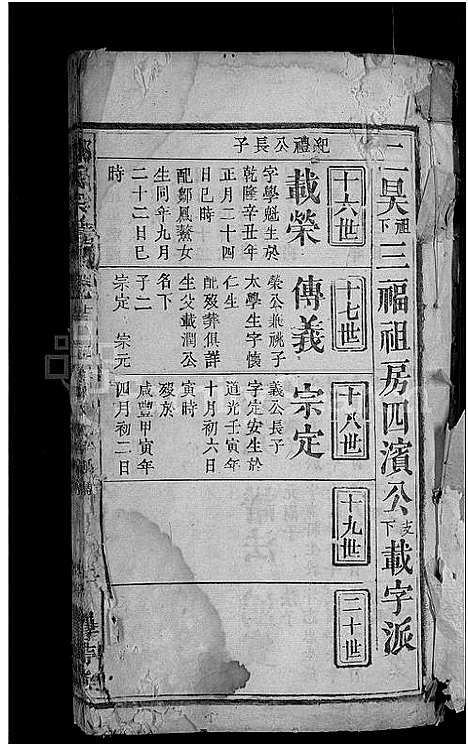 二昊祖下三福祖房四濱公支下載字派
十六世
十七世
十八世
十九世
二十世
紀禮公長子
載榮
字學魁生於
乾隆辛丑年
正月二十四
日巳時
配鄒鳳鰲女
生同年九月
二十二日巳
時
傳義
榮公兼祧子
太學生字懷
仁生
配歿葬俱詳
生父載潤公
名下
子二
宗定 宗元
宗定
義公長子
字定安生於
道光壬寅年
十月初六日
寅時
歿於
咸豐甲寅年
四月初二日